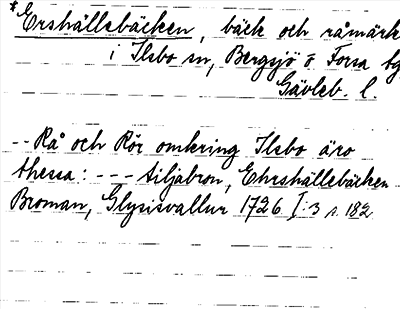 *Ershällebäcken, bäck och råmärk
i Ilsbo sn, Bergsjö o Forsa bg
Gävleb. l.
-- Rå och Rör omkring Ilsbo äro
thessa: --- Siljabron, Ehrshällebäcken
Broman, Glysisvallur 1726 I:3 s. 182